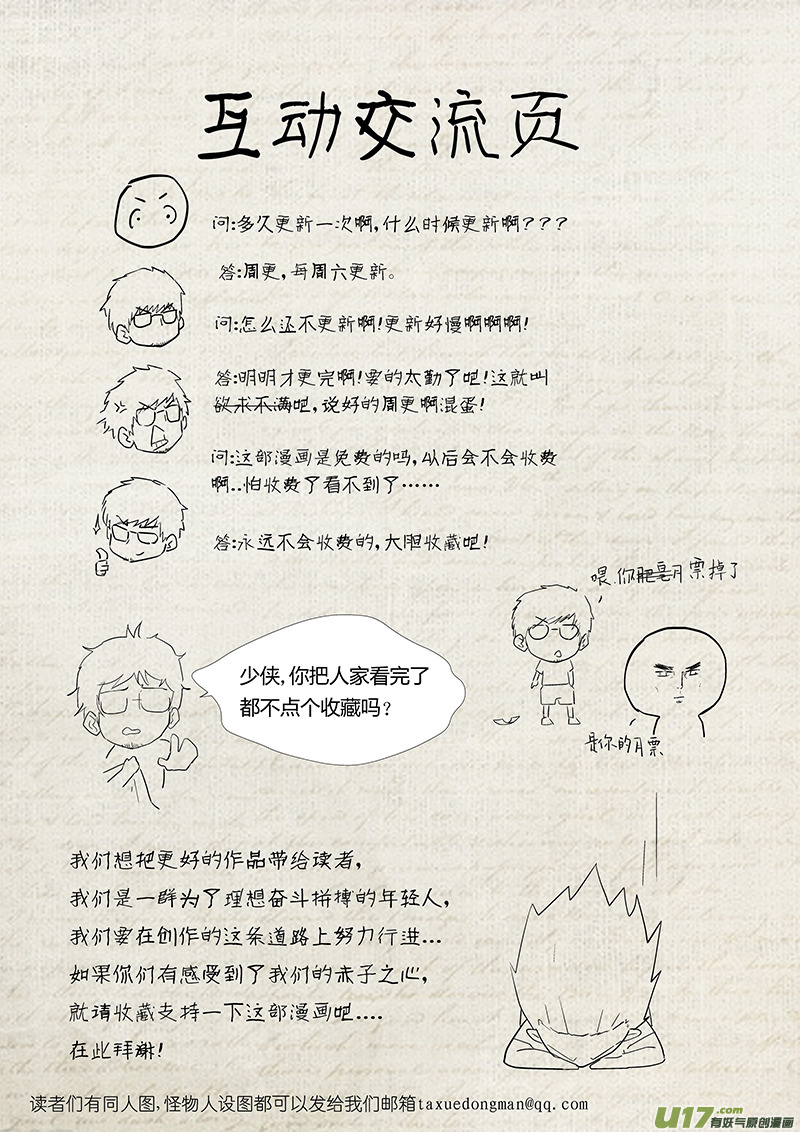 互动交流页
问:多久更新一次啊,什么时候更新啊???
答:周更,每周六更新。
问:怎么还不更新啊!更新好慢啊啊啊!
答:明明才更完啊!要的太勤了吧!这就叫
欲求不满吧,说好的周更啊混蛋!
问:这部漫画是免费的吗,以后会不会收费
啊..怕收费了看不到了……
答:永远不会收费的,大胆收藏吧!
喂.你肥皂月票掉了
少侠,你把人家看完了
都不点个收藏吗?
是你的月票
我们想把更好的作品带给读者,
我们是一群为了理想奋斗拼搏的年轻人,
我们要在创作的这条道路上努力行进...
如果你们有感受到了我们的赤子之心,
就请收藏支持一下这部漫画吧....
在此拜谢!
读者们有同人图,怪物人设图都可以发给我们邮箱taxuedongman@qq.com
U17.com
有妖气原创漫画